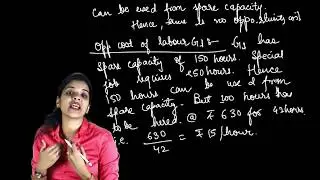 can be used from spare capacity.
Hence, there is no opportunity cost
Opp cost of labour G13:- G13 has
spare capacity of 150 hours. Special
job requires 250 hours. Hence
150 hours can be used from
spare capacity. But 100 hours has
to be hired. @ ₹ 630 for 42 hours
i.e. 630
42
= ₹ 15/hour.